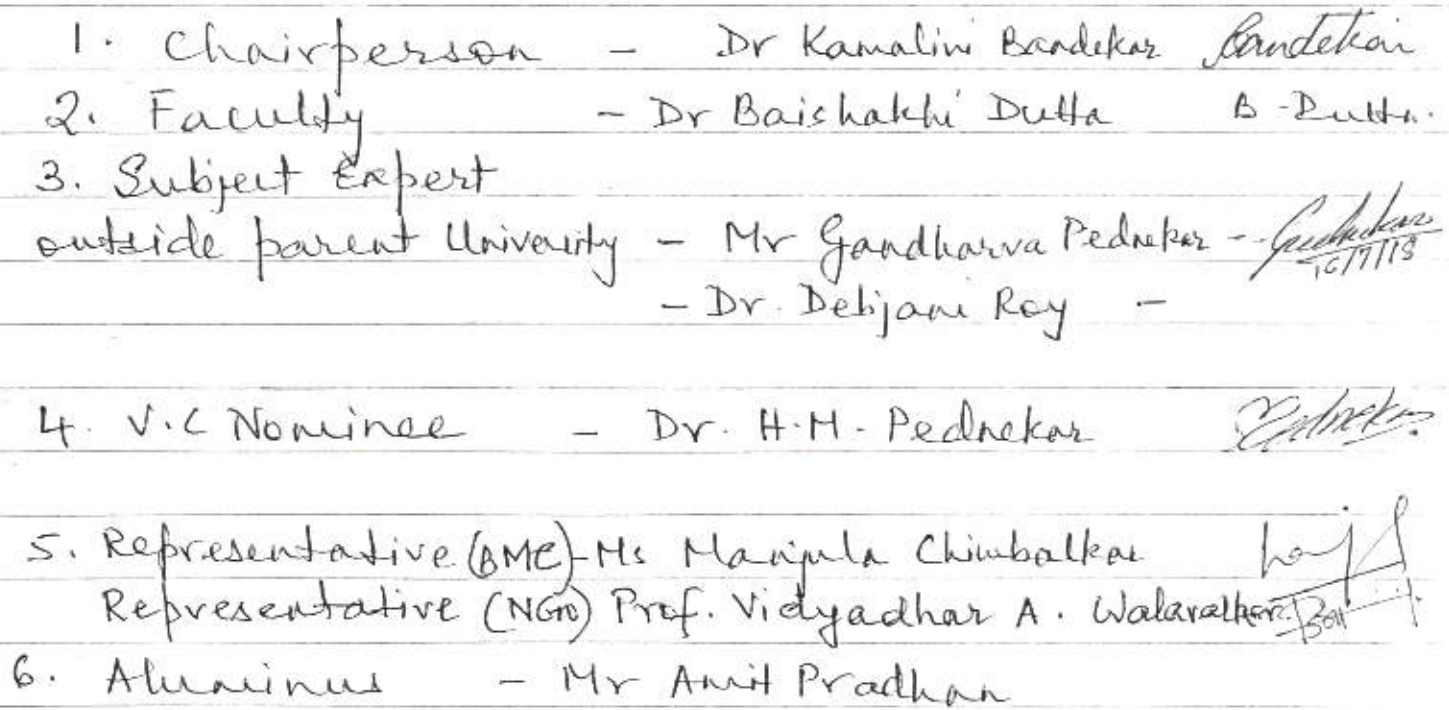 1. Chairperson - Dr Kamalini Bandekar Bandekar
2. Faculty - Dr Baishakhi Dutta B-Dutta.
3. Subject Expert
outside parent University - Mr Gandharva Pednekar - 16/7/18
- Dr. Debjani Roy -
4. V.C Nominee - Dr. H.M. Pednekar Pednekar.
5. Representative (BMC)-Ms Manjula Chimbalkar
Representative (NGO) Prof. Vidyadhar A. Walavalkar.
6. Aluminus - Mr Amit Pradhan